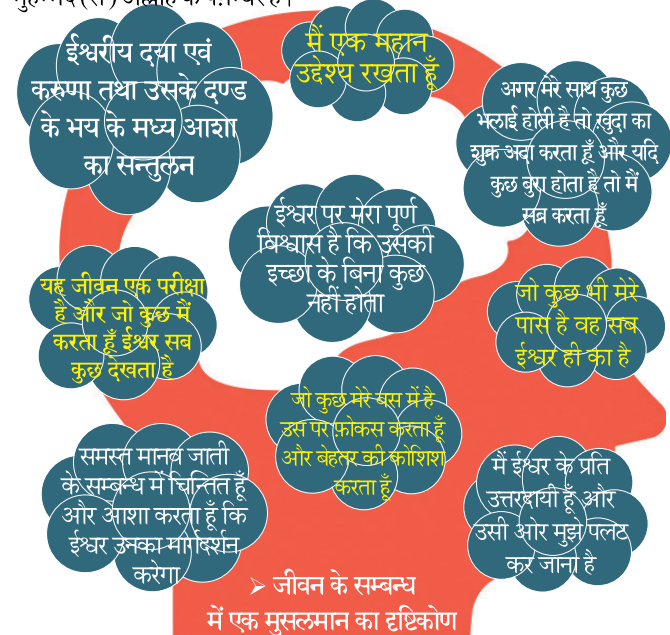 मुहम्मद (स०) अल्लाह के पैग़म्बर हैं।
ईश्वरीय दया एवं
करुणा तथा उसके दण्ड
के भय के मध्य आशा
का सन्तुलन
मैं एक महान
उद्देश्य रखता हूँ
अगर मेरे साथ कुछ
भलाई होती है तो ख़ुदा का
शुक्र अदा करता हूँ और यदि
कुछ बुरा होता है तो मैं
सब्र करता हूँ
ईश्वर पर मेरा पूर्ण
विश्वास है कि उसकी
इच्छा के बिना कुछ
नहीं होता
यह जीवन एक परीक्षा
है और जो कुछ मैं
करता हूँ ईश्वर सब
कुछ देखता है
जो कुछ भी मेरे
पास है वह सब
ईश्वर ही का है
जो कुछ मेरे बस में है
उस पर फ़ोकस करता हूँ
और बेहतर की कोशिश
करता हूँ
समस्त मानव जाती
के सम्बन्ध में चिन्तित हूँ
और आशा करता हूँ कि
ईश्वर उनका मार्गदर्शन
करेगा
मैं ईश्वर के प्रति
उत्तरदायी हूँ और
उसी ओर मुझे पलट
कर जाना है
➢ जीवन के सम्बन्ध
में एक मुसलमान का दृष्टिकोण